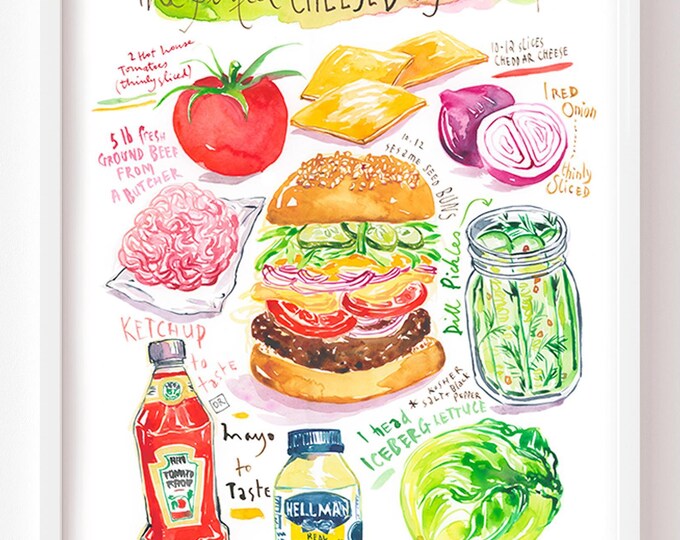 CHEESEBURG
2 Hot house
Tomatoes
(thinly sliced)
10-12 SLICES
CHEDDAR CHEESE
1 RED
Onion
thinly
SLICED
5 lb fresh
GROUND BEEF
FROM
A BUTCHER
10-12
sesame seed BUNS
Dill Pickles
KETCHUP
to
taste
OR
* KOSHER
SALT & Black
PEPPER
1 head
ICEBERG LETTUCE
mayo
to
Taste
TOMATO
HELLMAN
REAL